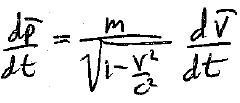 dp̄/dt = m/√(1-v²/c²) dv̄/dt